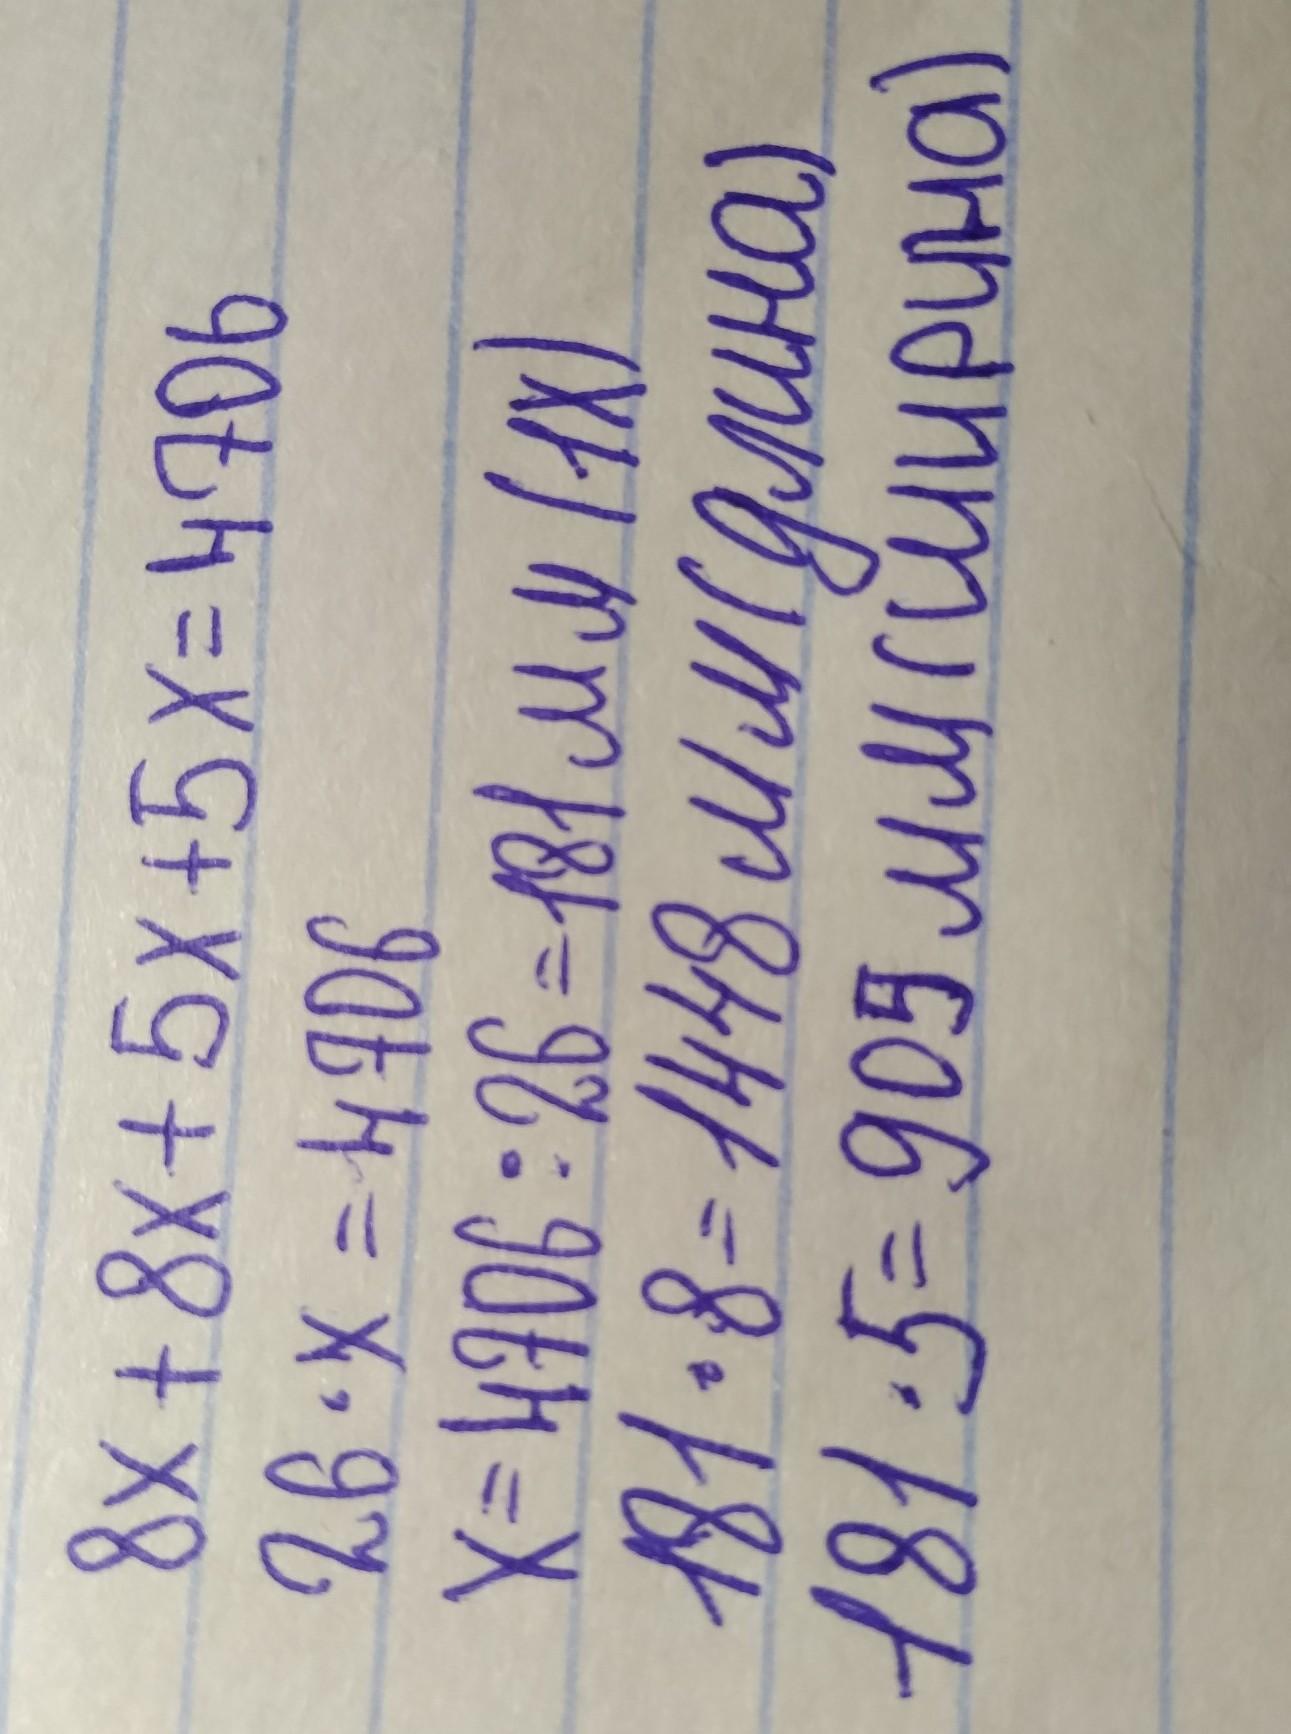 8x + 8x + 5x + 5x = 4706
26 · x = 4706
x = 4706 : 26 = 181 мм (1x)
181 · 8 = 1448 мм (длина)
181 · 5 = 905 мм (ширина)